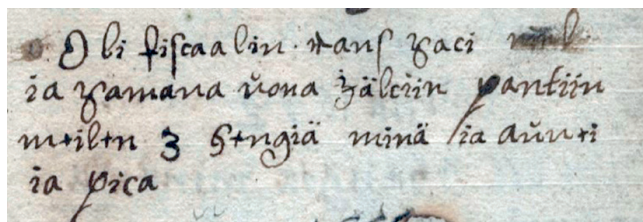 Oli fiscaalin. tans zaci
ia zamana vona jälciin pantiin
meilen 3 hengiä minä ia auneti
ia pica